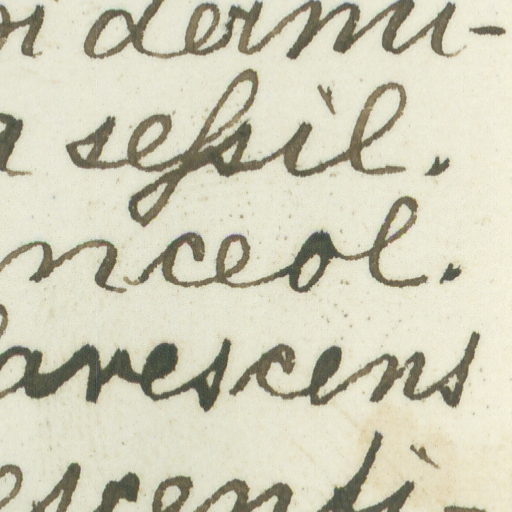 idermi-
a sessil.
nceol.
arescens
escenti-